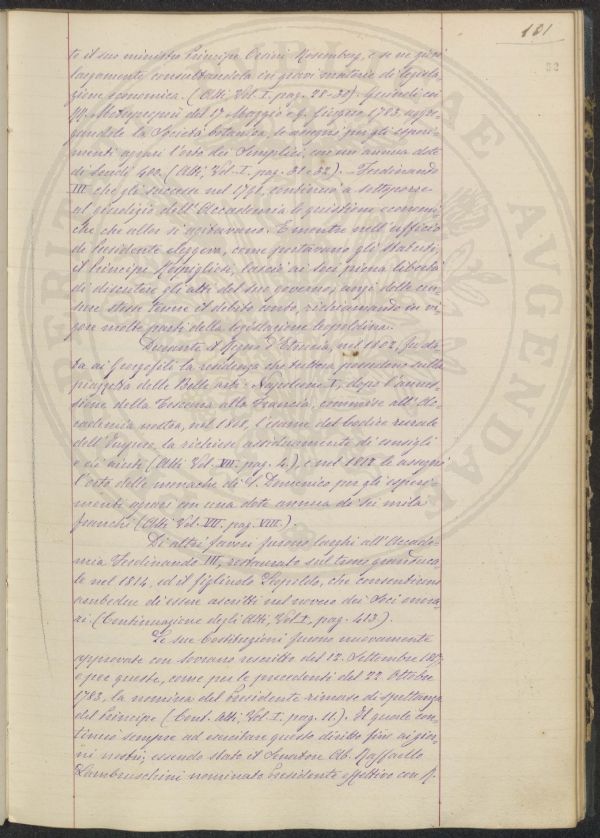 101
32
te il suo ministro Principe Orsini Rosemberg, e se ne giovò
largamente consultandola in gravi materie di legisla-
zione economica. (Atti, Vol. I. pag. 28-30). Quindi coi
Motupropri del 17 Maggio e Giugno 1783, aggre-
gandole la Società botanica, le assegnò per gli esperi-
menti agrari l'orto dei Semplici, con un'annua dote
di Scudi 400. (Atti, Vol. I. pag. 31 e 32). Ferdinando
III che gli successe nel 1791, continuò a sottoporre
al giudizio dell'Accademia le quistioni economi-
che che allor si agitavano. E mentre nell'ufficio
di Presidente eleggeva, come portavano gli statuti,
il Principe Rospigliosi, lasciò ai Soci piena libertà
di discutere gli atti del suo governo; anzi delle cen-
sure stesse tenne il debito conto, richiamando in vi-
gore molte parti della legislazione leopoldina.
Durante il Regno d'Etruria, nel 1802, fu da-
ta ai Georgofili la residenza che tuttora possedono sulla
piazzetta delle Belle arti. Napoleone I, dopo l'annes-
sione della Toscana alla Francia, commise all'Ac-
cademia nostra, nel 1808, l'esame del Codice rurale
dell'Impero, la richiese assiduamente di consigli
e di aiuti (Atti Vol. VII. pag. 4.), e nel 1812 le assegnò
l'orto delle monache di S. Domenico per gli esperi-
menti agrari con una dote annua di sei mila
franchi (Atti, Vol. VII. pag. VIII.).
Di altri favori furono larghi all'Accade-
mia Ferdinando III, restaurato sul trono granduca-
le nel 1814, ed il figliuolo Leopoldo, che consentirono
ambedue di essere ascritti nel novero dei Soci onora-
ri. (Continuazione degli Atti, Vol. I. pag. 413).
Le sue Costituzioni furono nuovamente
approvate con sovrano rescritto del 12 Settembre
e per queste, come per le precedenti del 22 Ottobre
1783, la nomina del Presidente rimase di spettanza
del Principe (Cont. Atti, Vol. I. pag. 11.). Il quale con-
tinuò sempre ad esercitare questo diritto fino ai gior-
ni nostri; essendo stato il Senatore Ab. Raffaello
Lambruschini nominato Presidente effettivo con R.